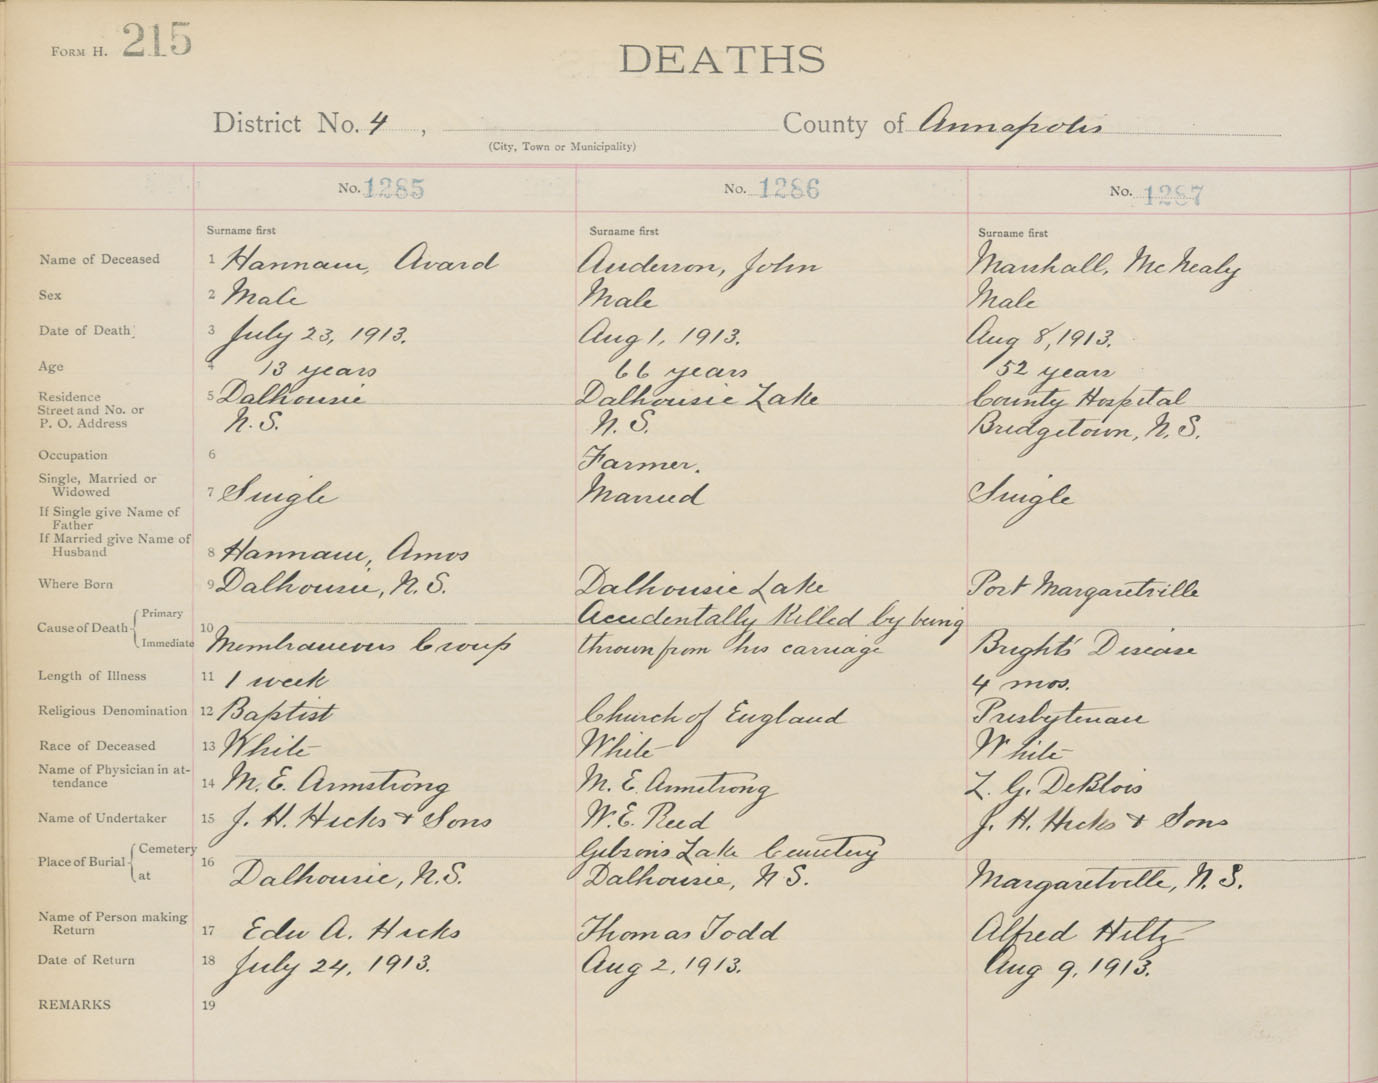 FORM H. 215
DEATHS
District No. 4 , County of Annapolis
(City, Town or Municipality)
No. 1285 No. 1286 No. 1287
Surname first Surname first Surname first
Name of Deceased 1 Hannam, Avard Anderson, John Marshall, McNealy
Sex 2 Male Male Male
Date of Death 3 July 23, 1913. Aug 1, 1913. Aug 8, 1913.
Age 4 13 years 66 years 52 years
Residence 5 Dalhousie Dalhousie Lake County Hospital
Street and No. or
P. O. Address N.S. N.S. Bridgetown, N.S.
Occupation 6 Farmer.
Single, Married or
Widowed 7 Single Married Single
If Single give Name of
Father
If Married give Name of
Husband 8 Hannam, Amos
Where Born 9 Dalhousie, N.S. Dalhousie Lake Port Margaretville
Cause of Death Primary 10 Accidentally Killed by being
Immediate Membraneous Croup thrown from his carriage Bright's Disease
Length of Illness 11 1 week 4 mos.
Religious Denomination 12 Baptist Church of England Presbyterian
Race of Deceased 13 White White White
Name of Physician in at-
tendance 14 M. E. Armstrong M. E. Armstrong L. G. DeBlois
Name of Undertaker 15 J. H. Hicks & Sons W. E. Reed J. H. Hicks & Sons
Place of Burial Cemetery 16 Gibson's Lake Cemetery
at Dalhousie, N.S. Dalhousie, N S. Margaretville, N.S.
Name of Person making
Return 17 Edw A. Hicks Thomas Todd Alfred Hiltz
Date of Return 18 July 24, 1913. Aug 2, 1913. Aug 9, 1913.
REMARKS 19